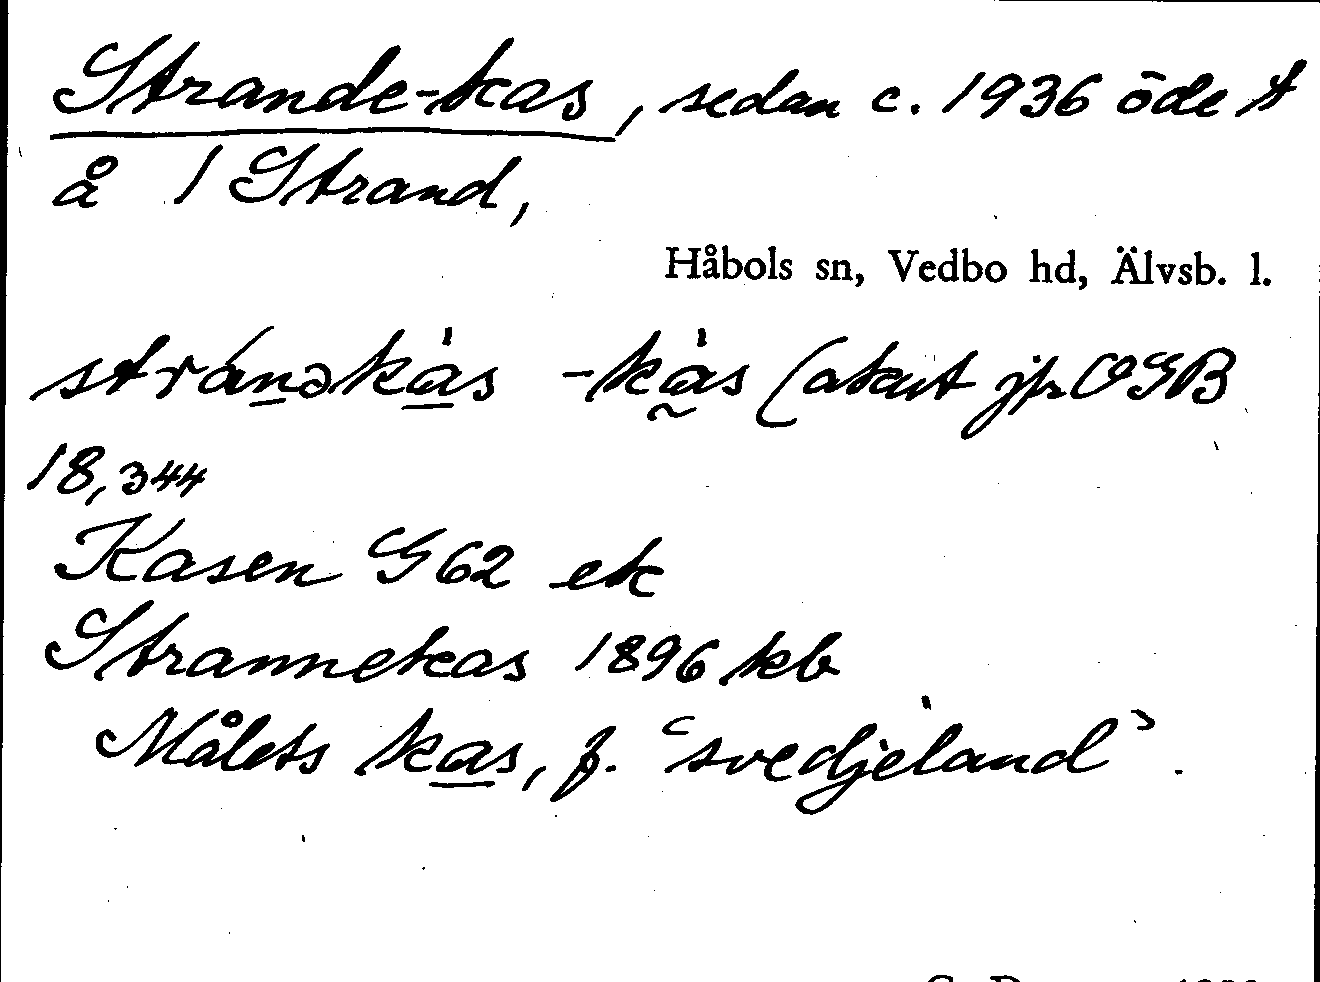 Strande-kas, sedan c. 1936 öde t
å 1 Strand,
Håbols sn, Vedbo hd, Älvsb. l.
stránəkàs -kàs (akut jfr OGB
18,344
Kasen G 62 ek
Strannekas 1896 kb
Målets kas, f. ‘svedjeland’.